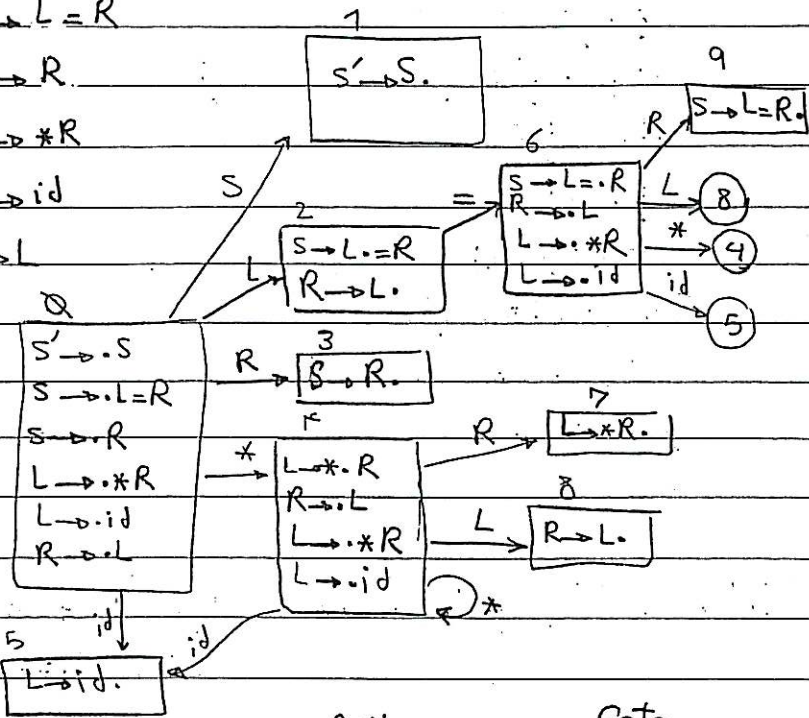 → L = R
→ R
→ *R
→ id
→ L
1
S' → S.
9
S → L=R.
R
6
S → L=.R
R → .L
L → .*R
L → .id
L
8
*
4
id
5
=
S
2
S → L.=R
R → L.
L
0
S' → .S
S → .L=R
S → .R
L → .*R
L → .id
R → .L
R
3
S → R.
*
L → *.R
R → .L
L → .*R
L → .id
*
R
7
L → *R.
L
8
R → L.
id
id
5
L → id.